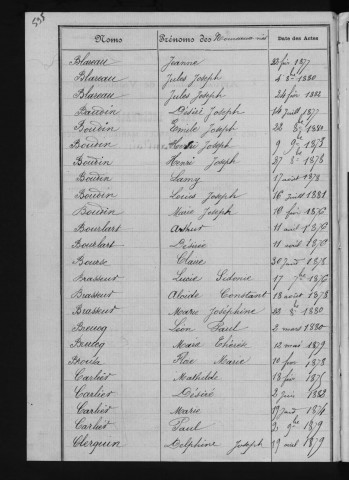 Noms Prénoms des Nouveaux-nés Date des Actes
Blareau Jeanne fév 1877
Blareau Jules Joseph 4 8bre 1880
Blareau Jules Joseph 24 fév 1882
Baudin Désiré Joseph 14 Juill 1877
Boudin Emile Joseph 22 1880
Boudin Henri Joseph 9 9bre 1875
Boudin Henri Joseph 27 8bre 1878
Boudin Samy 17 août 1878
Boudin Louis Joseph 16 Juill 1881
Boudin Marie Joseph 10 fév 1876
Bourlart Arthur 11 août 1876
Bourlart Désiré 11 août 1876
Bourse Clara 30 Juill 1878
Brasseur Lucie Sidonie 17 7bre 1876
Brasseur Alcide Constant 18 août 1878
Brasseur Marie Joséphine 1880
Breucq Léon Paul 2 mars 1880
Breucq Marie Thérèse 12 mai 1879
Marie 10 fév 1878
Carlier Mathilde 18 fév 1875
Carlier Désiré 2 Juin 1882
Carlier Marie 1874
Carlier Paul 9bre 1879
Clerquin Delphine Joseph 29 1879